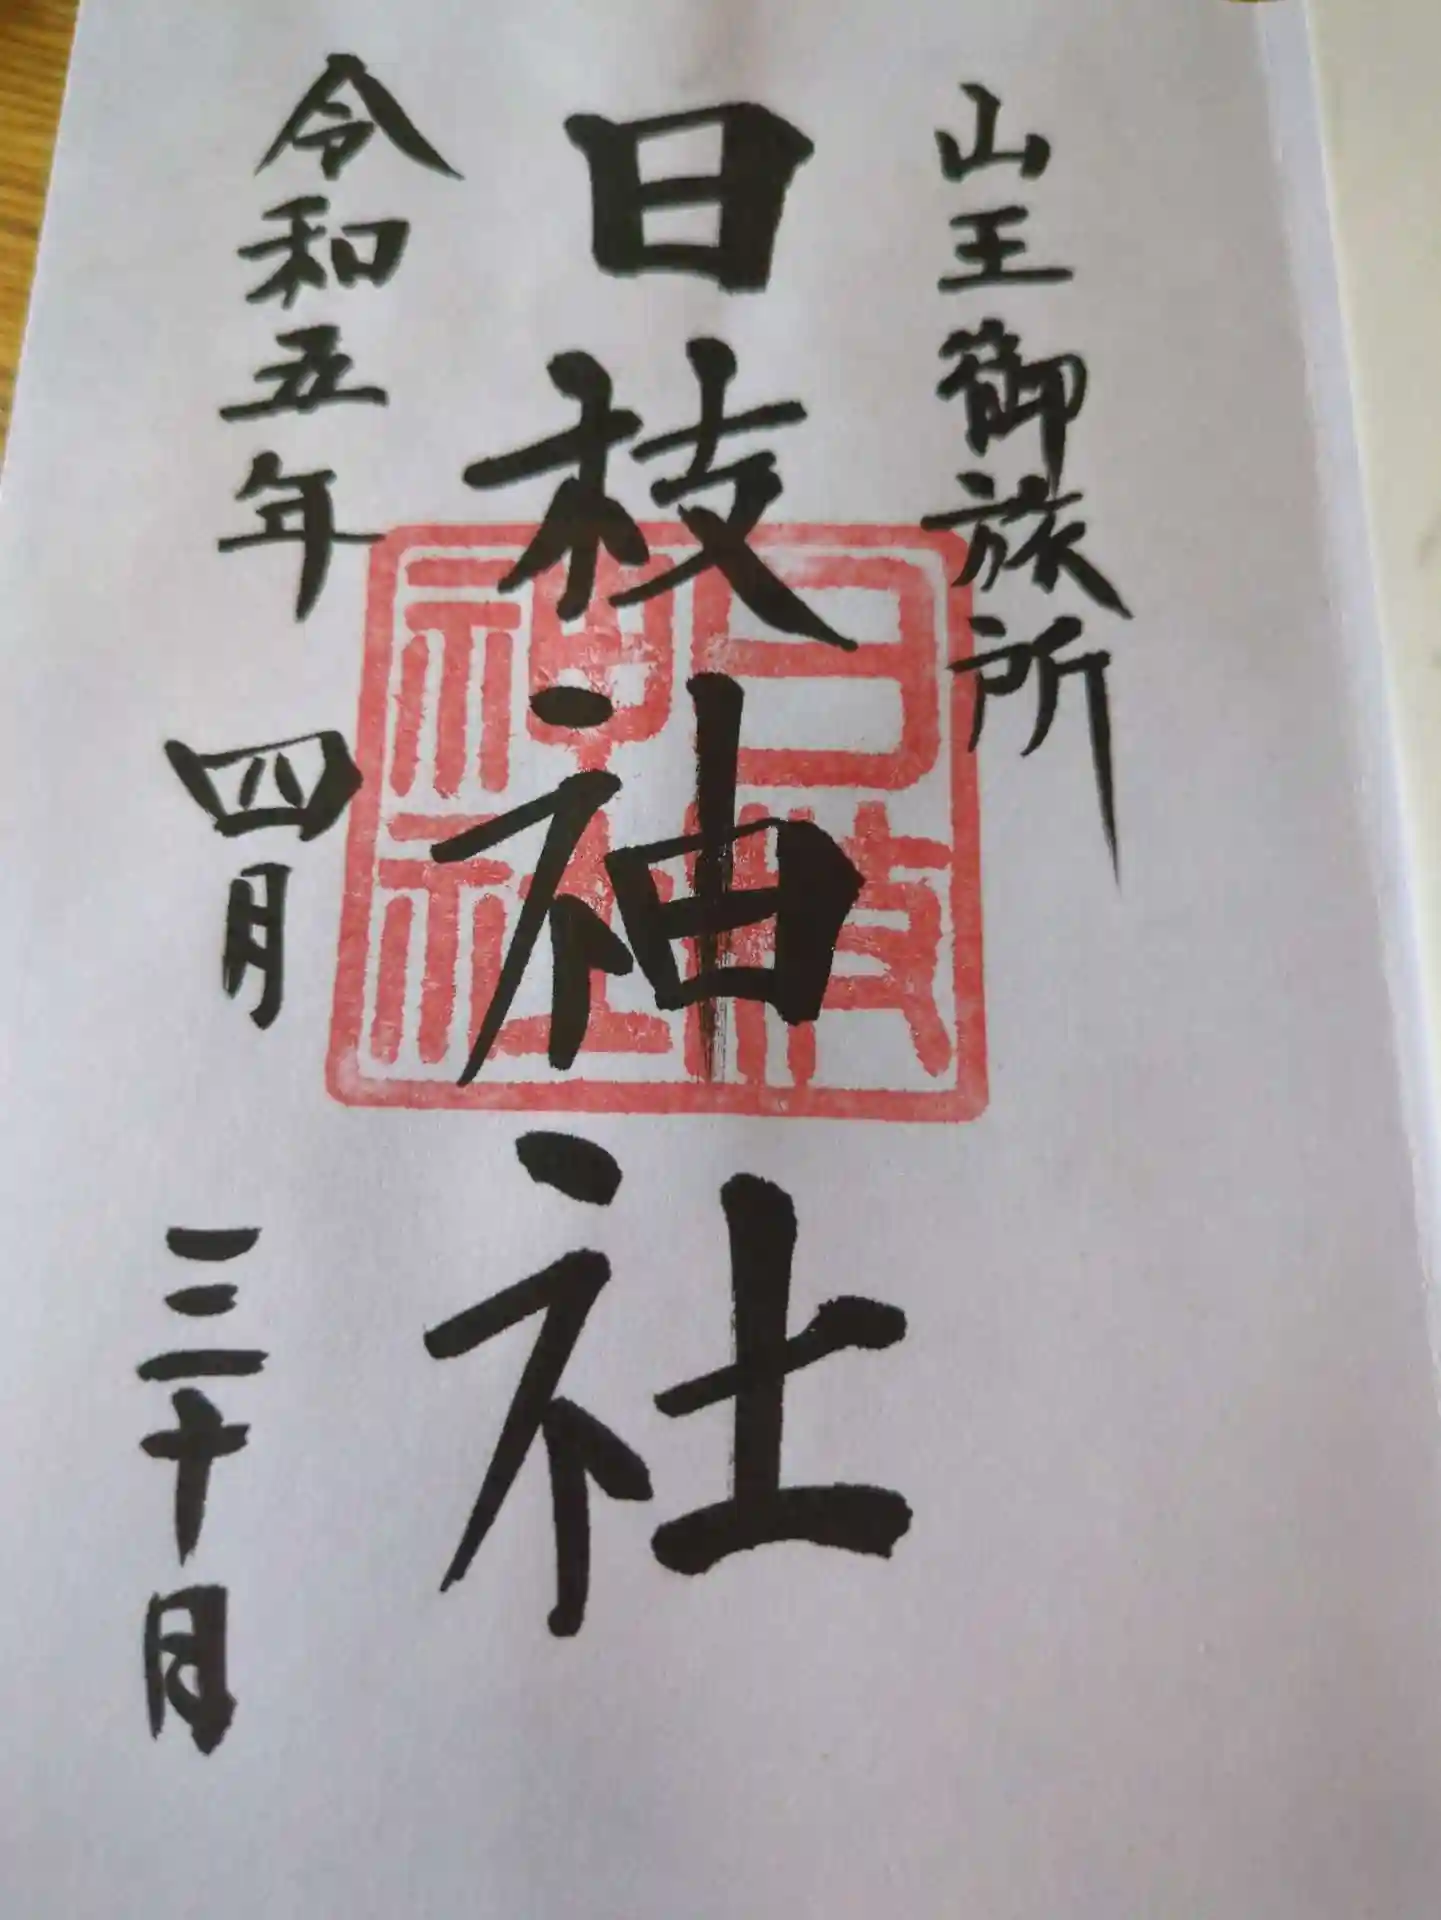 山王御旅所
日枝神社
日枝神社
令和五年 四月 三十日